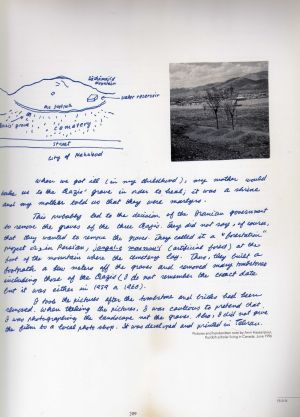 mountain
water reservoir
cemetery
street
city of Mahabad
When we got ill (in my childhood), my mother would
take us to the Qazis' grave in order to heal; it was a shrine
and my mother told us that they were martyrs.
This probably led to the decision of the Iranian government
to remove the graves of the three Qazis. They did not say, of course,
that they wanted to remove the graves. They called it a "forestation"
project or in Persian, jangal-e masnou'i (artificial forest) at the
foot of the mountain where the cemetery lay. Thus, they built a
footpath a few meters off the graves and removed many tombstones
including those of the Qazis (I do not remember the exact date
but it was either in 1959 or 1960).
I took the pictures after the tombstone and bricks had been
removed. When taking the pictures, I was cautious to pretend that
I was photographing the landscape not the graves. Also, I did not give
the film to a local photo shop. It was developed and printed in Tehran.
Pictures and handwritten note by Amir Hassanpour,
Kurdish scholar living in Canada, June 1996
289